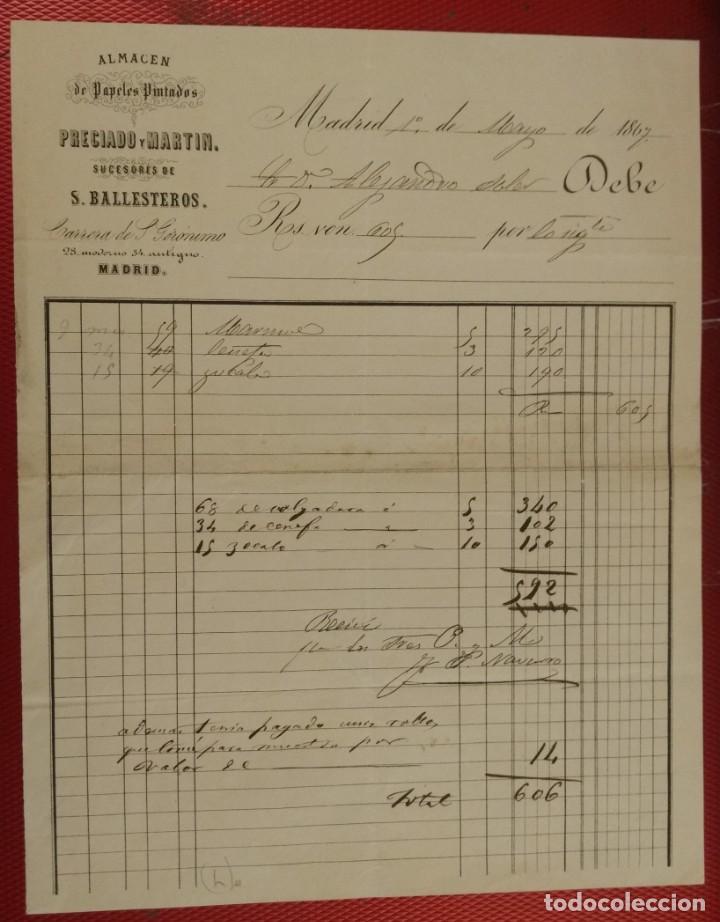 ALMACEN
de Papeles Pintados
PRECIADO Y MARTIN.
SUCESORES DE
S. BALLESTEROS.
Carrera de S. Gerónimo
28. moderno 34. antiguo.
MADRID.
Madrid 1º de Mayo de 1867
D. Alejandro Soler Debe
Rs. von. 605 por lo sigte
59 5 295
34 40 3 120
15 19 zocalo 10 190
605
68 de colgadura á 5 340
34 de cenefa 3 102
15 zocalo á 10 150
592
Recivi
por los Sres P. y M.
P. Navarro
ademas tenia pagado unos rollos
que tomé para muestra por
valor de 14
total 606
(4)
todocoleccion